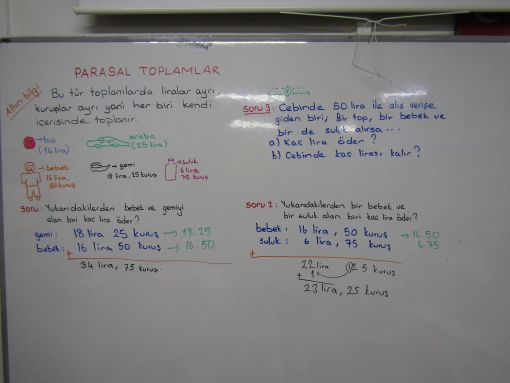 PARASAL TOPLAMLAR
Altın bilgi
Bu tür toplamlarda liralar ayrı
kuruşlar ayrı yani her biri kendi
içerisinde toplanır.
top
(14 lira)
araba
(25 lira)
bebek
16 lira,
50 kuruş
gemi
18 lira, 25 kuruş
suluk
6 lira
75 kuruş
Soru: Yukarıdakilerden bebek ve gemiyi
alan biri kaç lira öder?
gemi: 18 lira 25 kuruş → 18.25
bebek: 16 lira 50 kuruş → 16.50
+
34 lira, 75 kuruş
Soru 3: Cebinde 50 lira ile alış verişe
giden biri; Bir top, bir bebek ve
bir de suluk alırsa...
a) Kaç lira öder?
b) Cebinde kaç lirası kalır?
Soru 2: Yukarıdakilerden bir bebek ve
bir suluk alan biri kaç lira öder?
bebek: 16 lira, 50 kuruş → 16.50
suluk: 6 lira, 75 kuruş 6.75
+
22 lira 125 kuruş
+ 1
23 lira, 25 kuruş